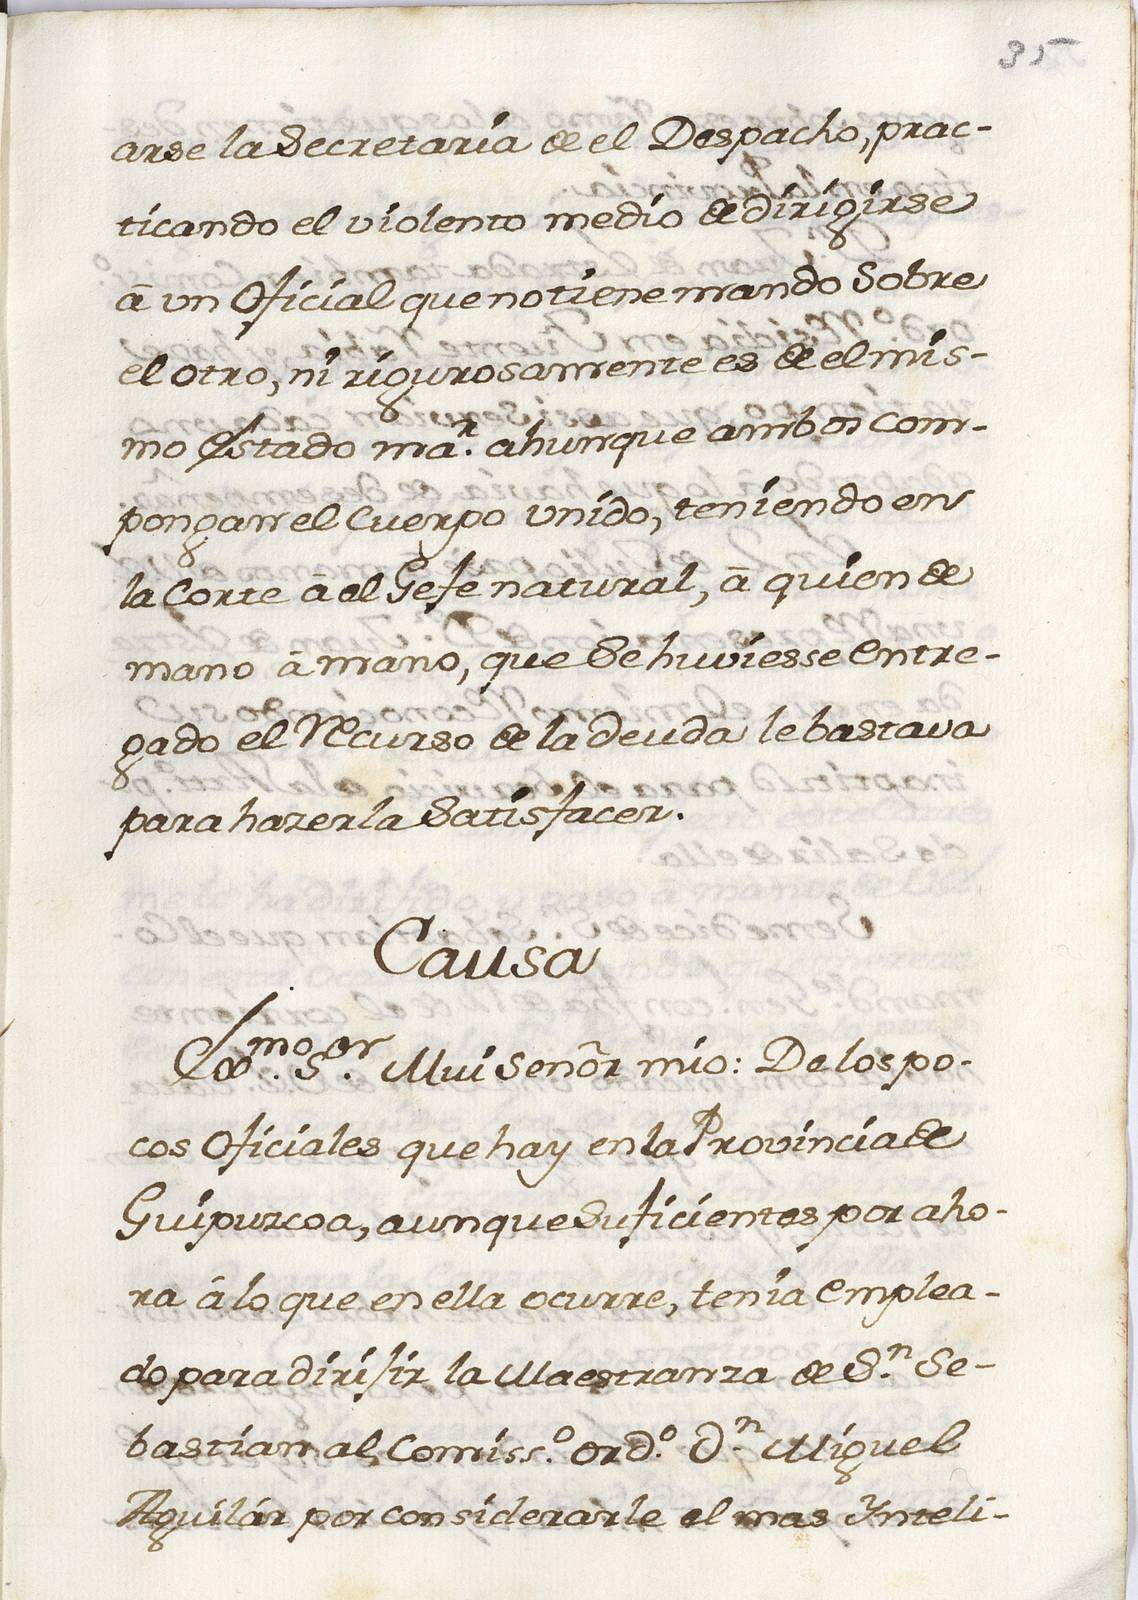 35
arse la Secretaría de el Despacho, prac-
ticando el violento medio de dirigirse
â un Oficial que no tiene mando Sobre
el otro, ni rigurosamente es de el mis-
mo Estado ma.r ahunque ambos com-
pongan el Cuerpo unido, teniendo en
la Corte â el Gefe natural, â quien de
mano â mano, que Se huviesse entre-
gado el Recurso de la deuda le bastava
para hazerla Satisfacer.
Causa
Exmo. Sor. Mui Señor mio: De los po-
cos Oficiales que hay en la Provincia de
Guipuzcoa, aunque Suficientes por aho-
ra â lo que en ella ocurre, tenía emplea-
do para dirijir la Maestranza de S.n Se-
bastian al Comiss.o ord.o D.n Miguel
Aguilár por considerarle el mas Ynteli-